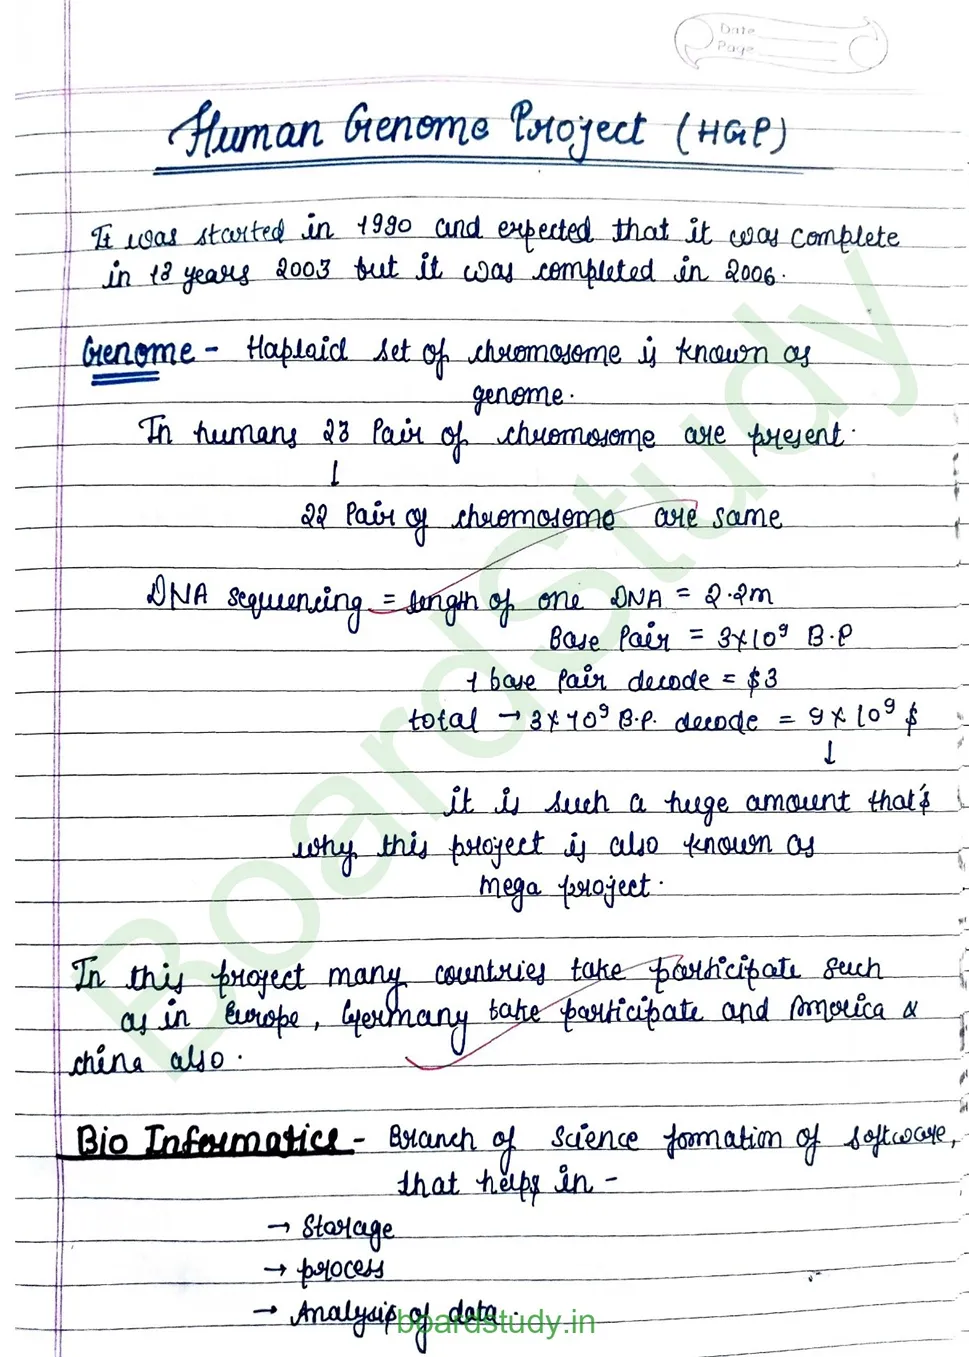 Date
Page
Human Genome Project (HGP)
It was started in 1990 and expected that it was complete
in 13 years 2003 but it was completed in 2006.
Genome - Haploid set of chromosome is known as
genome.
In humans 23 Pair of chromosome are present.
↓
22 Pair of chromosome are same
DNA sequencing = length of one DNA = 2.2m
Base Pair = 3×10⁹ B.P
1 base pair decode = $3
total → 3×10⁹ B.P. decode = 9×10⁹ $
↓
it is such a huge amount that's
why this project is also known as
mega project.
In this project many countries take participate such
as in Europe, Germany take participate and America &
china also.
Bio Informatics - Branch of science formation of software,
that helps in -
→ storage
→ process
→ Analysis of data.
boardstudy.in
BoardStudy